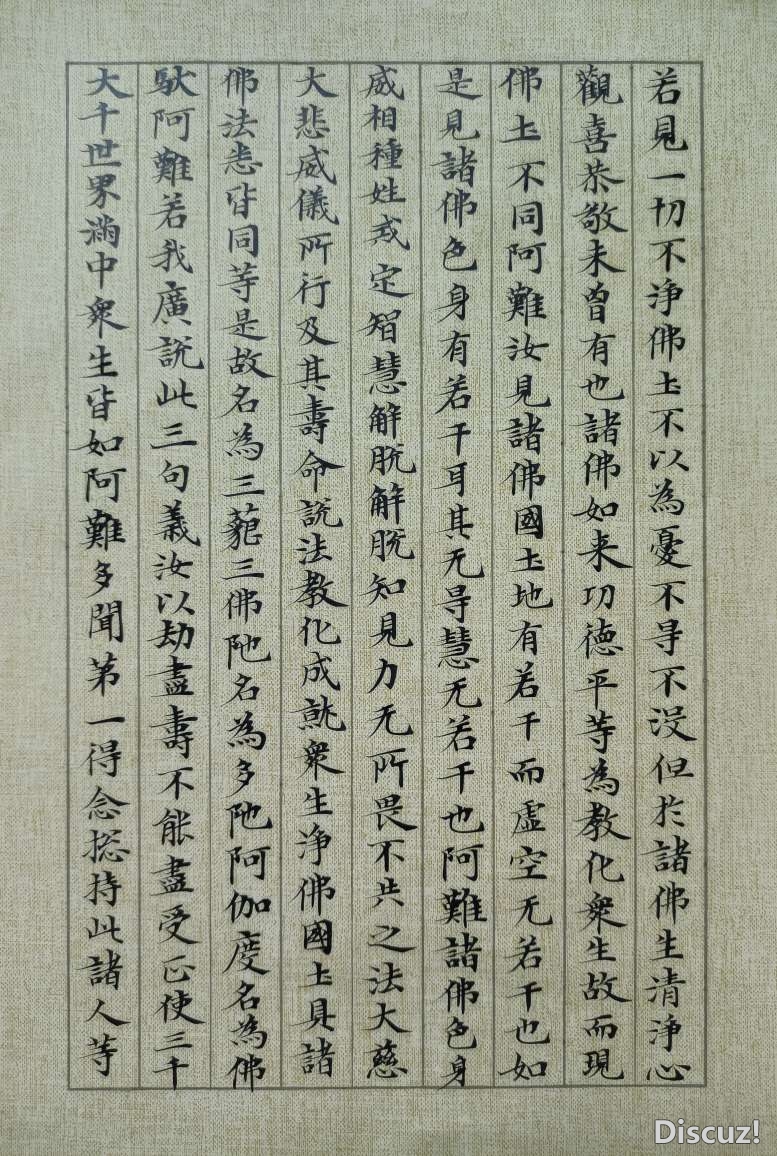 若見一切不淨佛土不以為憂不㝵不没但於諸佛生清淨心
觀喜恭敬未曾有也諸佛如来功德平等為教化衆生故而現
佛土不同阿難汝見諸佛國土地有若干而虛空无若干也如
是見諸佛色身有若干耳其无㝵慧无若干也阿難諸佛色身
威相種姓戒定智慧解脱解脱知見力无所畏不共之法大慈
大悲威儀所行及其壽命説法教化成就衆生淨佛國土具諸
佛法悉皆同等是故名為三藐三佛陁名為多陁阿伽度名為佛
馱阿難若我廣説此三句義汝以劫盡壽不能盡受正使三千
大千世界滿中衆生皆如阿難多聞第一得念揔持此諸人等
Discuz!